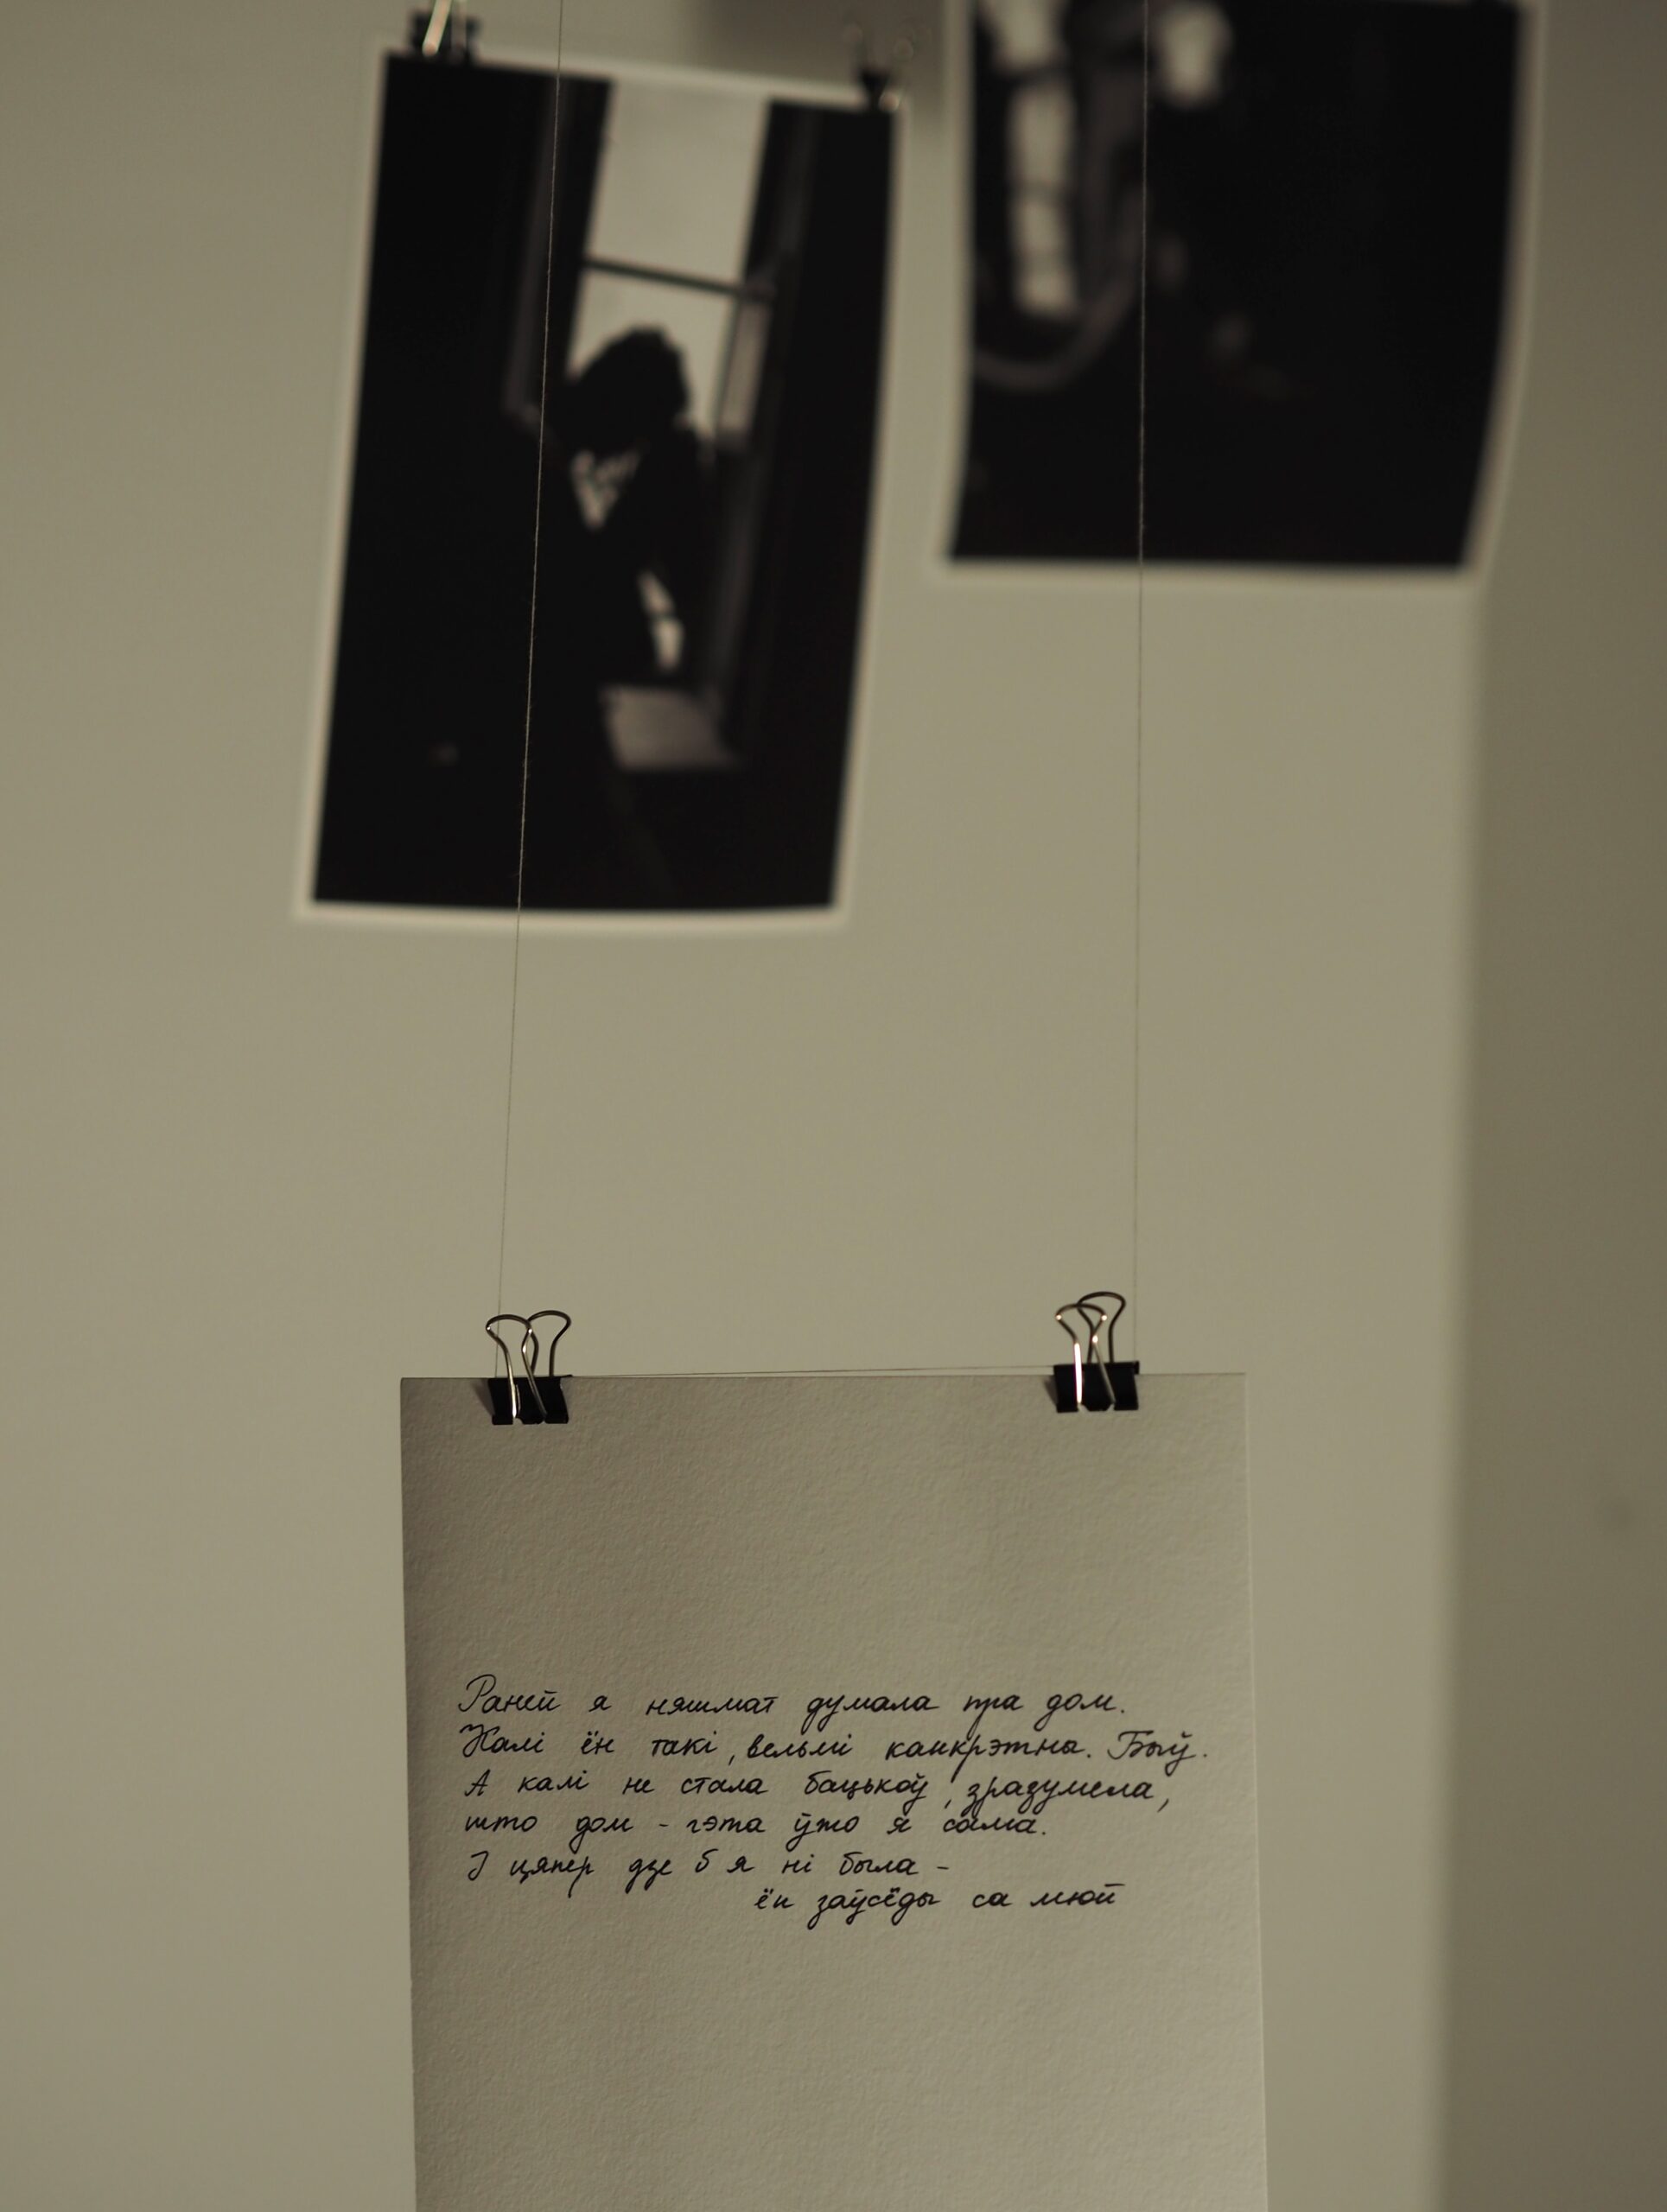 Раней я няшмат думала пра дом.
Калі ён такі, вельмі канкрэтны. Быў.
А калі не стала бацькоў, зразумела,
што дом - гэта ўжо я сама.
І цяпер дзе б я ні была -
ён заўсёды са мной